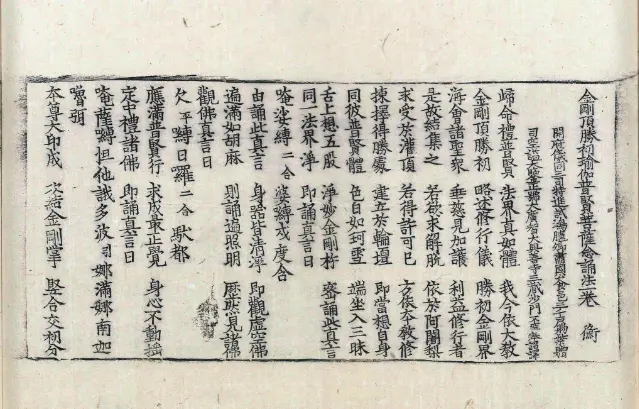 金剛頂勝初瑜伽普賢菩薩念誦法一卷 衡
開府儀同三司特進試鴻臚卿肅國公食邑三千戶賜紫贈
司空謚大鑒正號大廣智大興善寺三藏沙門不空奉詔譯
歸命禮普賢 法界真如體 我今依大教
金剛頂勝初 略述修行儀 勝初金剛界
海會諸聖衆 垂慈見加護 利益修行者
是故結集之 若欲求解脫 依於阿闍梨
求受於灌頂 若得許可已 方依本教修
揀擇得勝處 建立於輪壇 即當想自身
同彼普賢體 色白如珂雪 端坐入三昧
舌上想五股 淨妙金剛杵 密誦此真言
同一法界淨 即誦真言曰
唵娑嚩 二合 婆嚩戍度含
由誦此真言 身器皆清淨 即觀虛空佛
遍滿如胡麻 則誦遍照明 歷然見諸佛
觀佛真言曰
欠 平 嚩日羅 二合 馱都
應滿普賢行 求成最正覺 身心不動搖
定中禮諸佛 即誦真言曰
唵薩嚩怛他誐多波 引 娜滿娜南迦
嚕弭
本尊大印成 次結金剛掌 堅合交初分